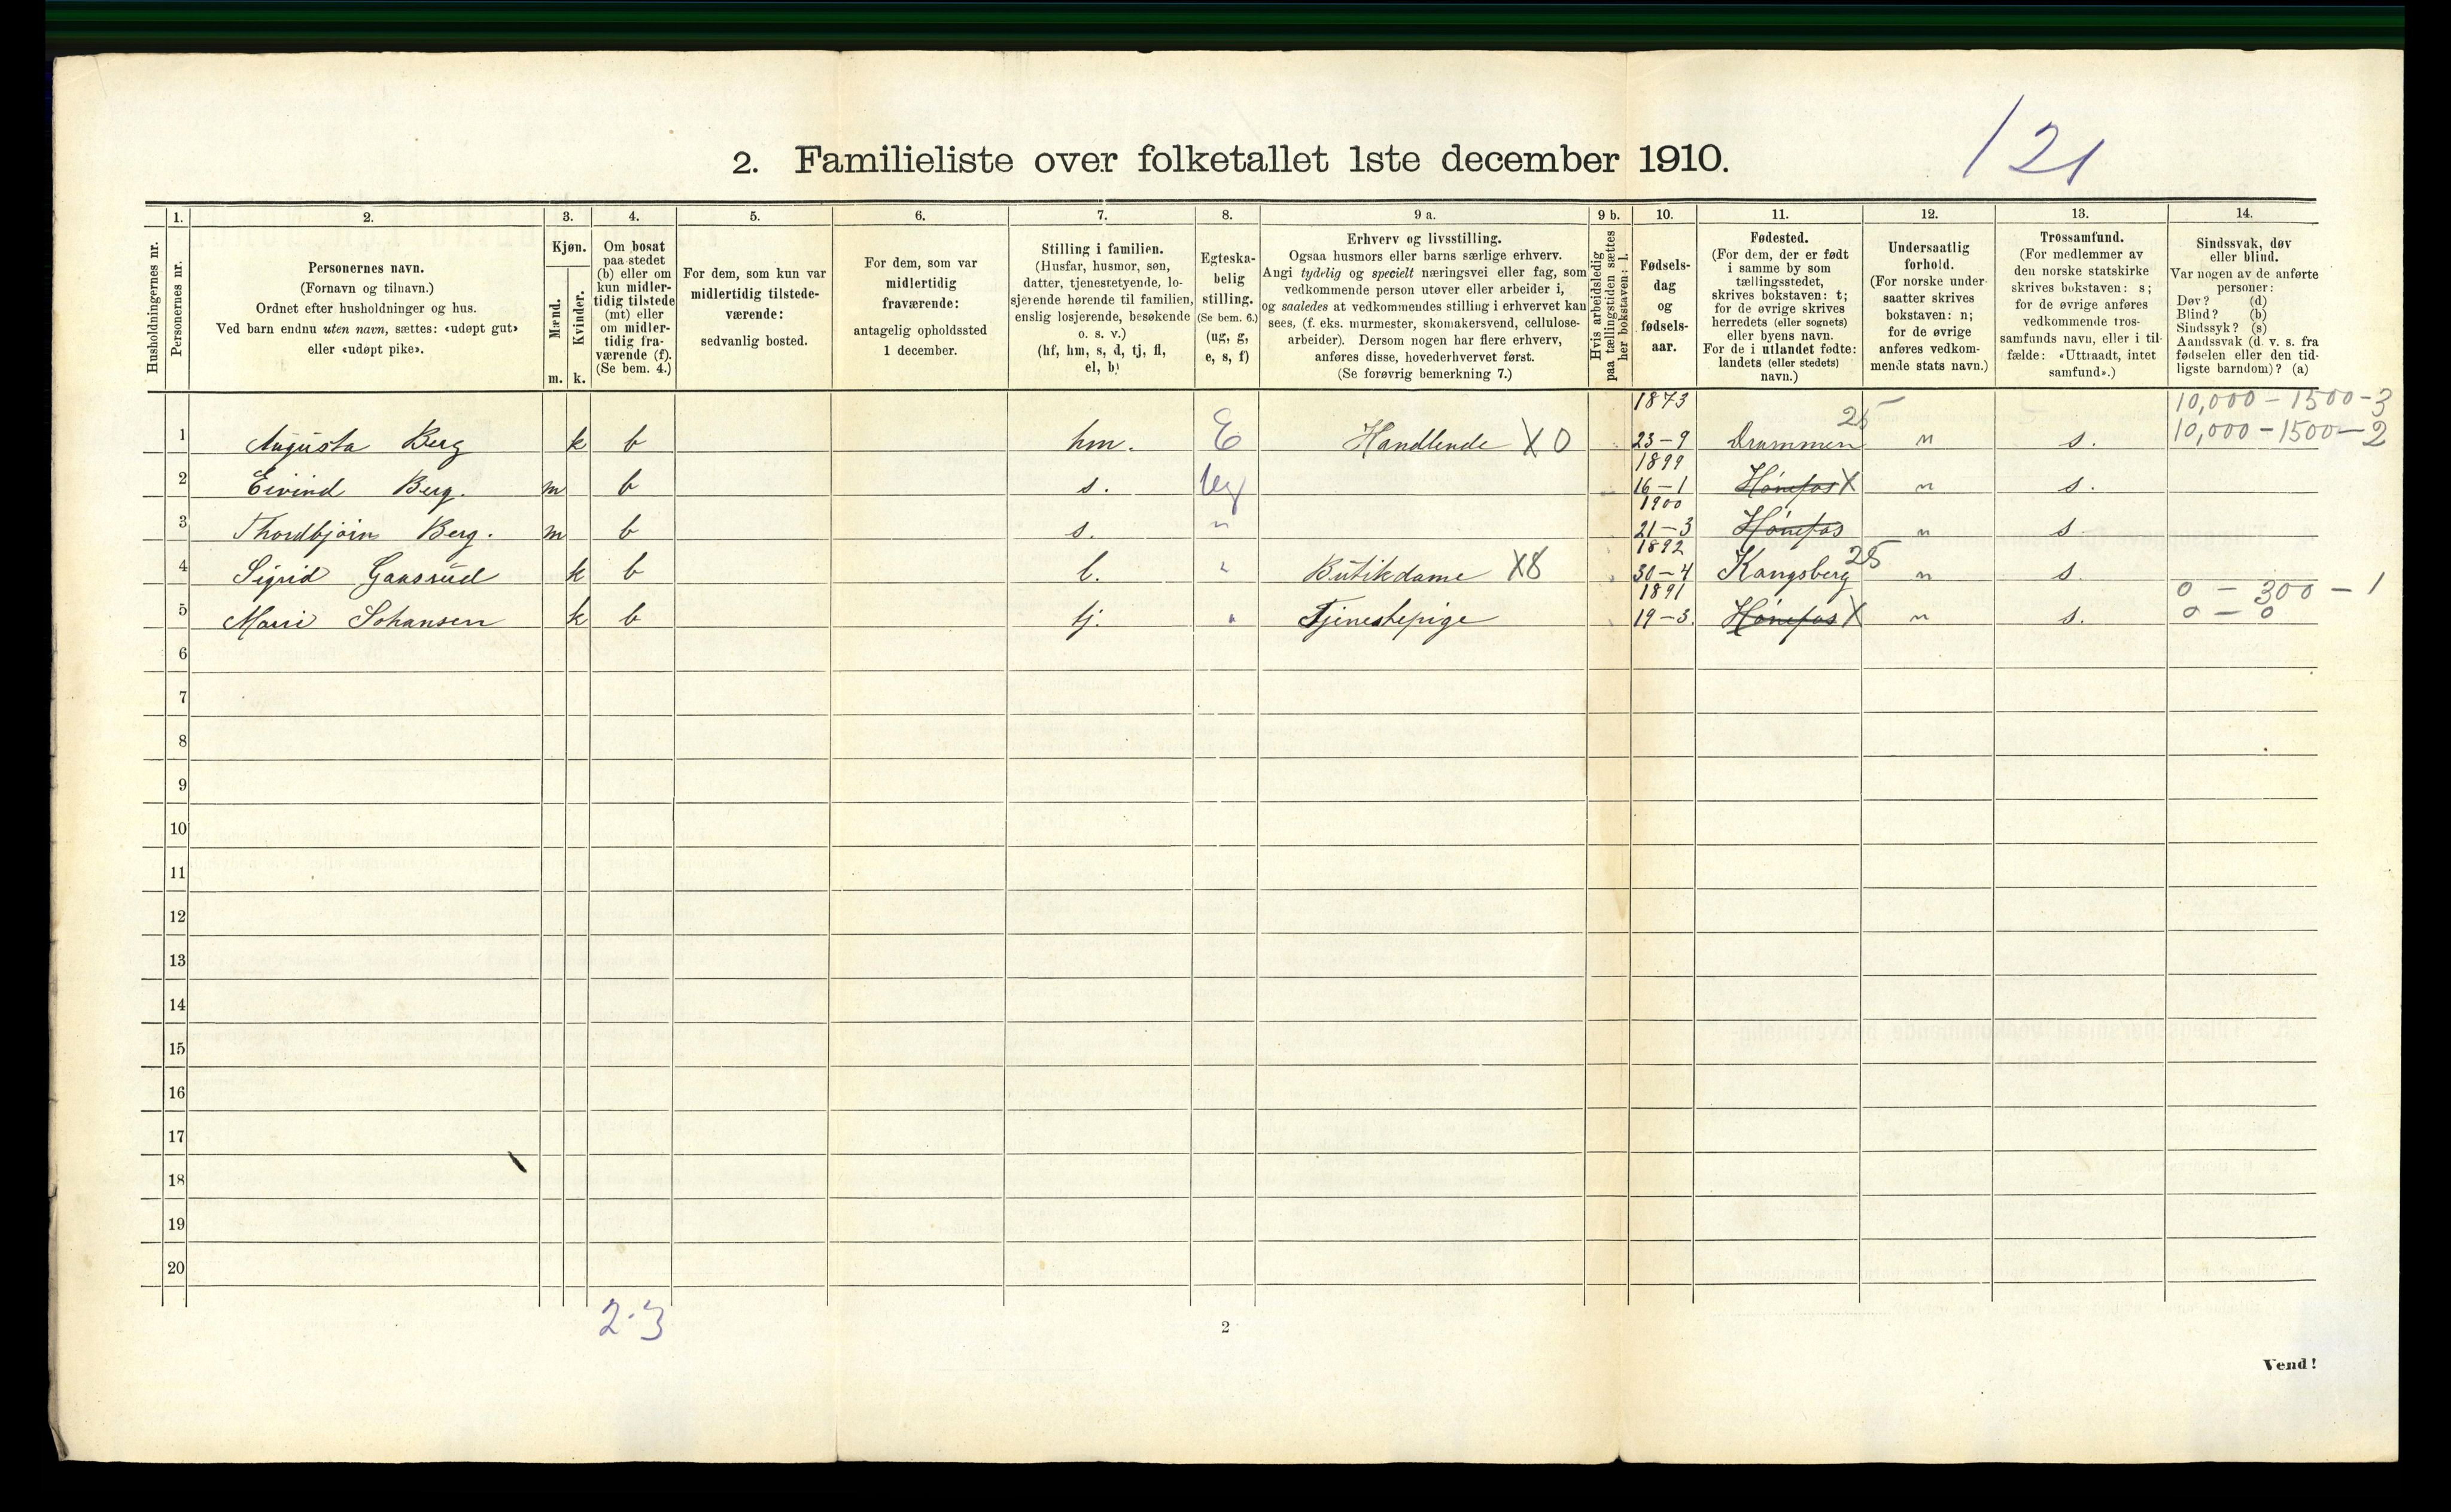 121
2. Familieliste over folketallet 1ste december 1910.
1. 2. 3. 4. 5. 6. 7. 8. 9 a. 9 b. 10. 11. 12. 13. 14.
Husholdningernes nr.
Personernes nr.
Personernes navn.
(Fornavn og tilnavn.)
Ordnet efter husholdninger og hus.
Ved barn endnu uten navn, sættes: «udøpt gut»
eller «udøpt pike».
Kjøn.
Mænd.
Kvinder.
m. k.
Om bosat
paa stedet
(b) eller om
kun midler-
tidig tilstede
(mt) eller
om midler-
tidig fra-
værende (f).
(Se bem. 4.)
For dem, som kun var
midlertidig tilstede-
værende:
sedvanlig bosted.
For dem, som var
midlertidig
fraværende:
antagelig opholdssted
1 december.
Stilling i familien.
(Husfar, husmor, søn,
datter, tjenestetyende, lo-
sjerende hørende til familien,
enslig losjerende, besøkende
o. s. v.)
(hf, hm, s, d, tj, fl,
el, b)
Egteska-
belig
stilling.
(Se bem. 6.)
(ug, g,
e, s, f)
Erhverv og livsstilling.
Ogsaa husmors eller barns særlige erhverv.
Angi tydelig og specielt næringsvei eller fag, som
vedkommende person utøver eller arbeider i,
og saaledes at vedkommendes stilling i erhvervet kan
sees, (f. eks. murmester, skomakersvend, cellulose-
arbeider). Dersom nogen har flere erhverv,
anføres disse, hovederhvervet først.
(Se forøvrig bemerkning 7.)
Hvis arbeidsledig
paa tællingstiden sættes
her bokstaven: l.
Fødsels-
dag
og
fødsels-
aar.
Fødested.
(For dem, der er født
i samme by som
tællingsstedet,
skrives bokstaven: t;
for de øvrige skrives
herredets (eller sognets)
eller byens navn.
For de i utlandet fødte:
landets (eller stedets)
navn.)
Undersaatlig
forhold.
(For norske under-
saatter skrives
bokstaven: n;
for de øvrige
anføres vedkom-
mende stats navn.)
Trossamfund.
(For medlemmer av
den norske statskirke
skrives bokstaven: s;
for de øvrige anføres
vedkommende tros-
samfunds navn, eller i til-
fælde: «Uttraadt, intet
samfund».)
Sindssvak, døv
eller blind.
Var nogen av de anførte
personer:
Døv? (d)
Blind? (b)
Sindssyk? (s)
Aandssvak (d. v. s. fra
fødselen eller den tid-
ligste barndom)? (a)
1873 25 10,000 - 1500 - 3
1 Augusta Berg k b hm. E Handlende X 0 23-9 Drammen n s. 10,000 - 1500 - 2
1899
2 Eivind Berg. m b s. ug 16-1 Hønefos X n s.
1900
3 Thordbjørn Berg. m b s. " 21-3 Hønefos n s
1892 25
4 Sigrid Gaasrud k b b. " Butikdame X8 30-4 Kongsberg n s.
1891 0 - 300 - 1
5 Marie Johansen k b tj. " Tjenestepige 19-3. Hønefos X n s. 0 - 0
6
7
8
9
10
11
12
13
14
15
16
17
18
19
20
2-3
2
Vend!